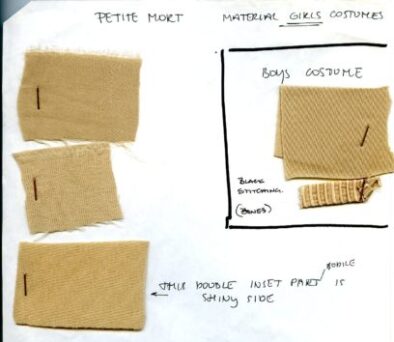 PETITE MORT
MATERIAL GIRLS COSTUMES
BOYS COSTUME
BLACK
STITCHING.
(BONES)
BODICE
THIS DOUBLE INSET PART IS
SHINY SIDE